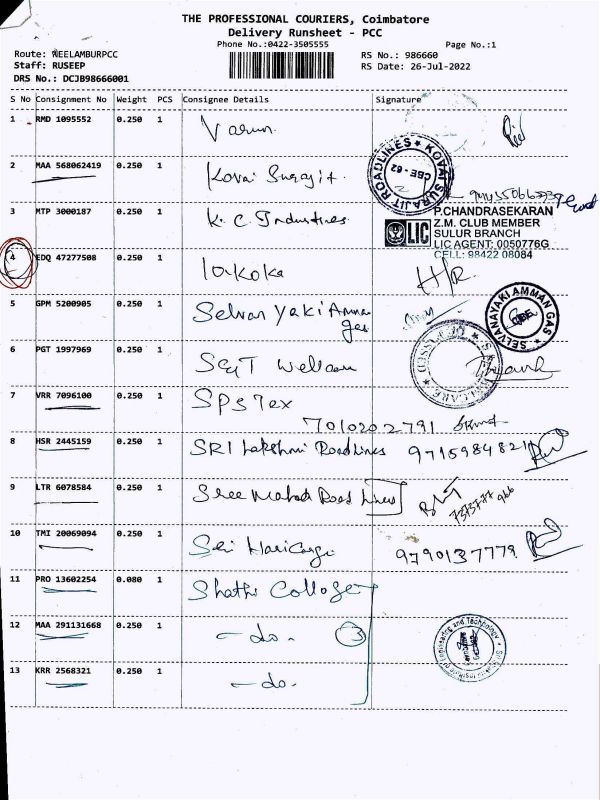 THE PROFESSIONAL COURIERS, Coimbatore
Delivery Runsheet - PCC
Phone No.:0422-3505555 Page No.:1
Route: NEELAMBURPCC RS No.: 986660
Staff: RUSEEP RS Date: 26-Jul-2022
DRS No.: DCJB98666001
S No Consignment No Weight PCS Consignee Details Signature
1 RMD 1095552 0.250 1 Varun
2 MAA 568062419 0.250 1 Kovai Surajit.
KOVAI SURAJIT ROADLINES CBE-62
3 MTP 3000187 0.250 1 K.C. Industries
P.CHANDRASEKARAN
LIC Z.M. CLUB MEMBER
SULUR BRANCH
LIC AGENT: 0050776G
CELL: 98422 08084
4 EDQ 47277508 0.250 1
5 GPM 5200905 0.250 1 Selvanayaki Amman
gas
SELVANAYAKI AMMAN GAS CBE
6 PGT 1997969 0.250 1
7 VRR 7096100 0.250 1 SPS Tex
7010202791
8 HSR 2445159 0.250 1 SRI Lakshmi Roadlines 9715984821
9 LTR 6078584 0.250 1 Sree Road Lines
10 TMI 20069094 0.250 1 Sri Haricargo 9790137779
11 PRO 13602254 0.080 1 Shathi College
12 MAA 291131668 0.250 1 - do - 3
13 KRR 2568321 0.250 1 - do -